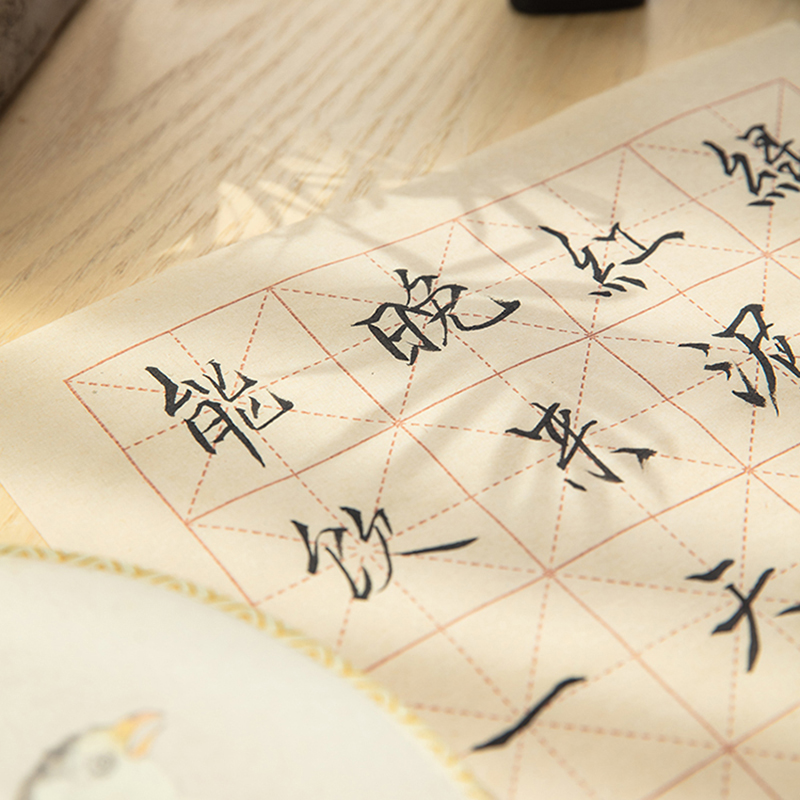 绿
红泥
晚来天
能饮一